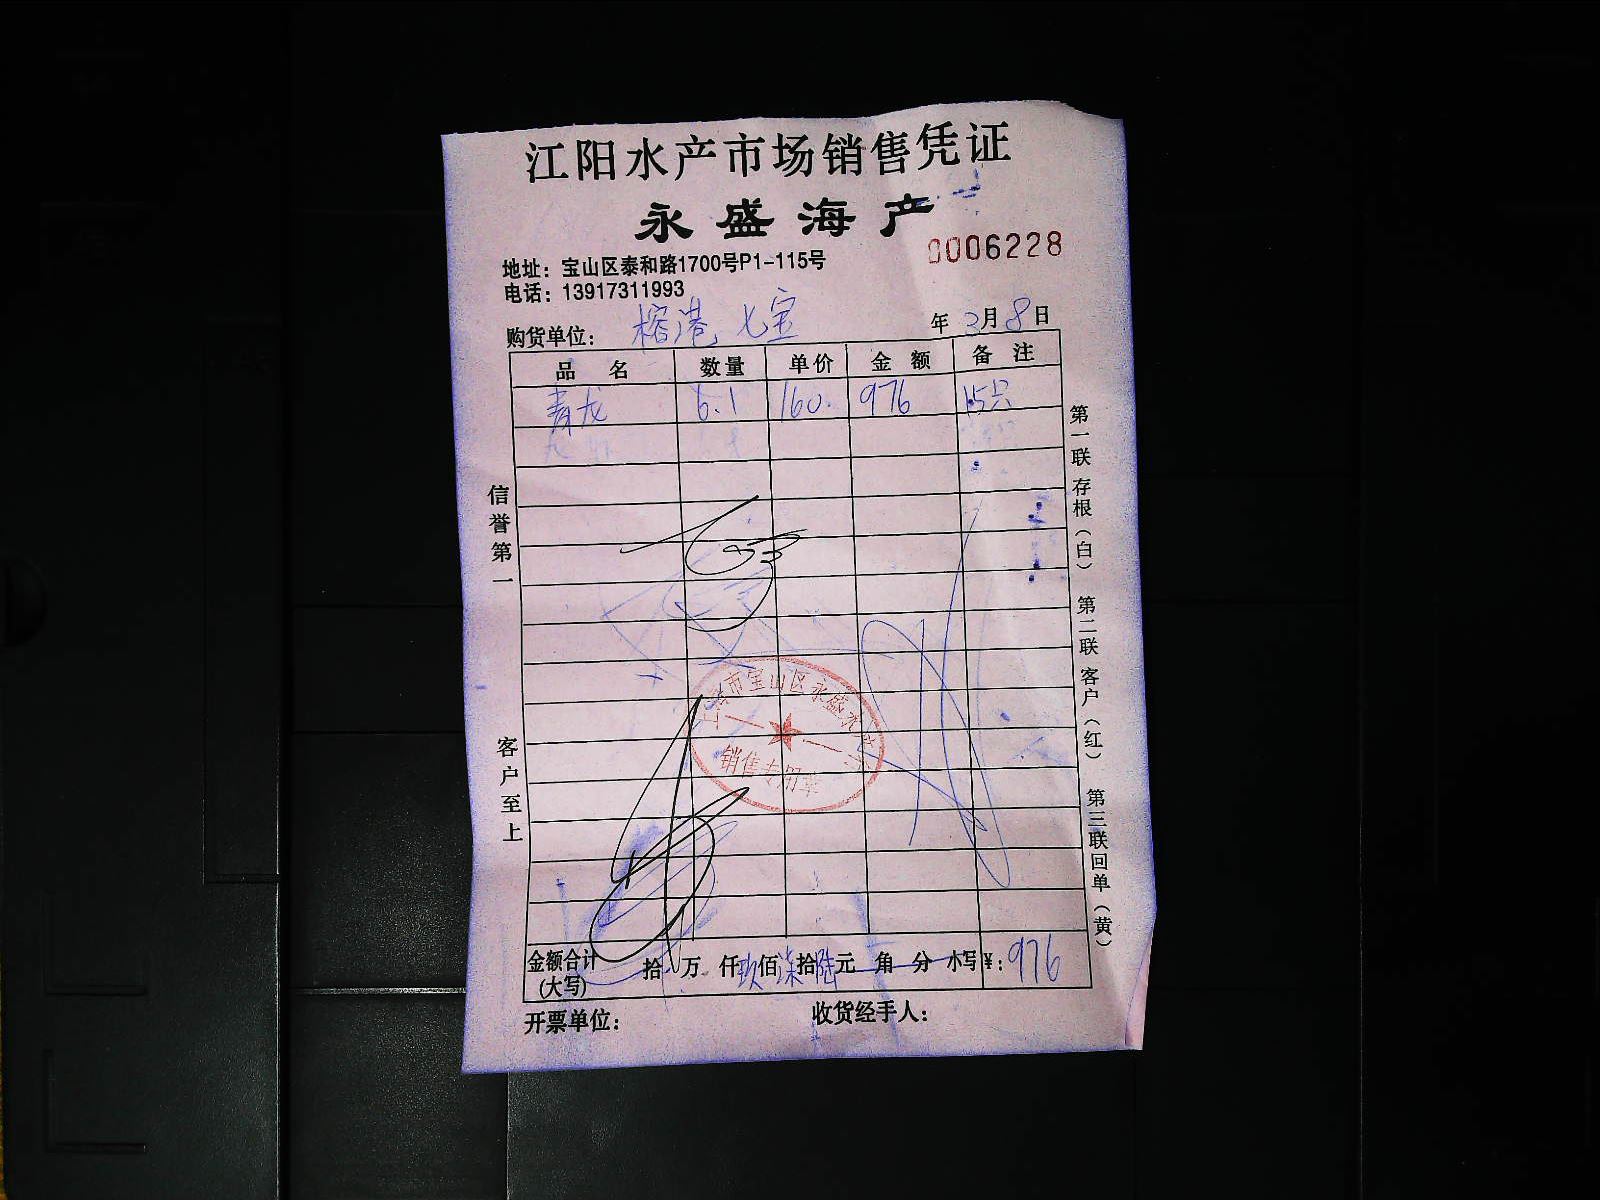 江阳水产市场销售凭证
永盛海产
0006228
地址：宝山区泰和路1700号P1-115号
电话：13917311993
购货单位：榕港 七宝 年 3月8日
品 名 数量 单价 金 额 备 注
青龙 6.1 160. 976 15只
信誉第一
客户至上
第一联存根（白） 第二联客户（红） 第三联回单（黄）
上海市宝山区永盛水产
销售专用章
金额合计(大写) 拾 万 仟玖佰柒拾陆元 角 分 小写¥：976
开票单位： 收货经手人：